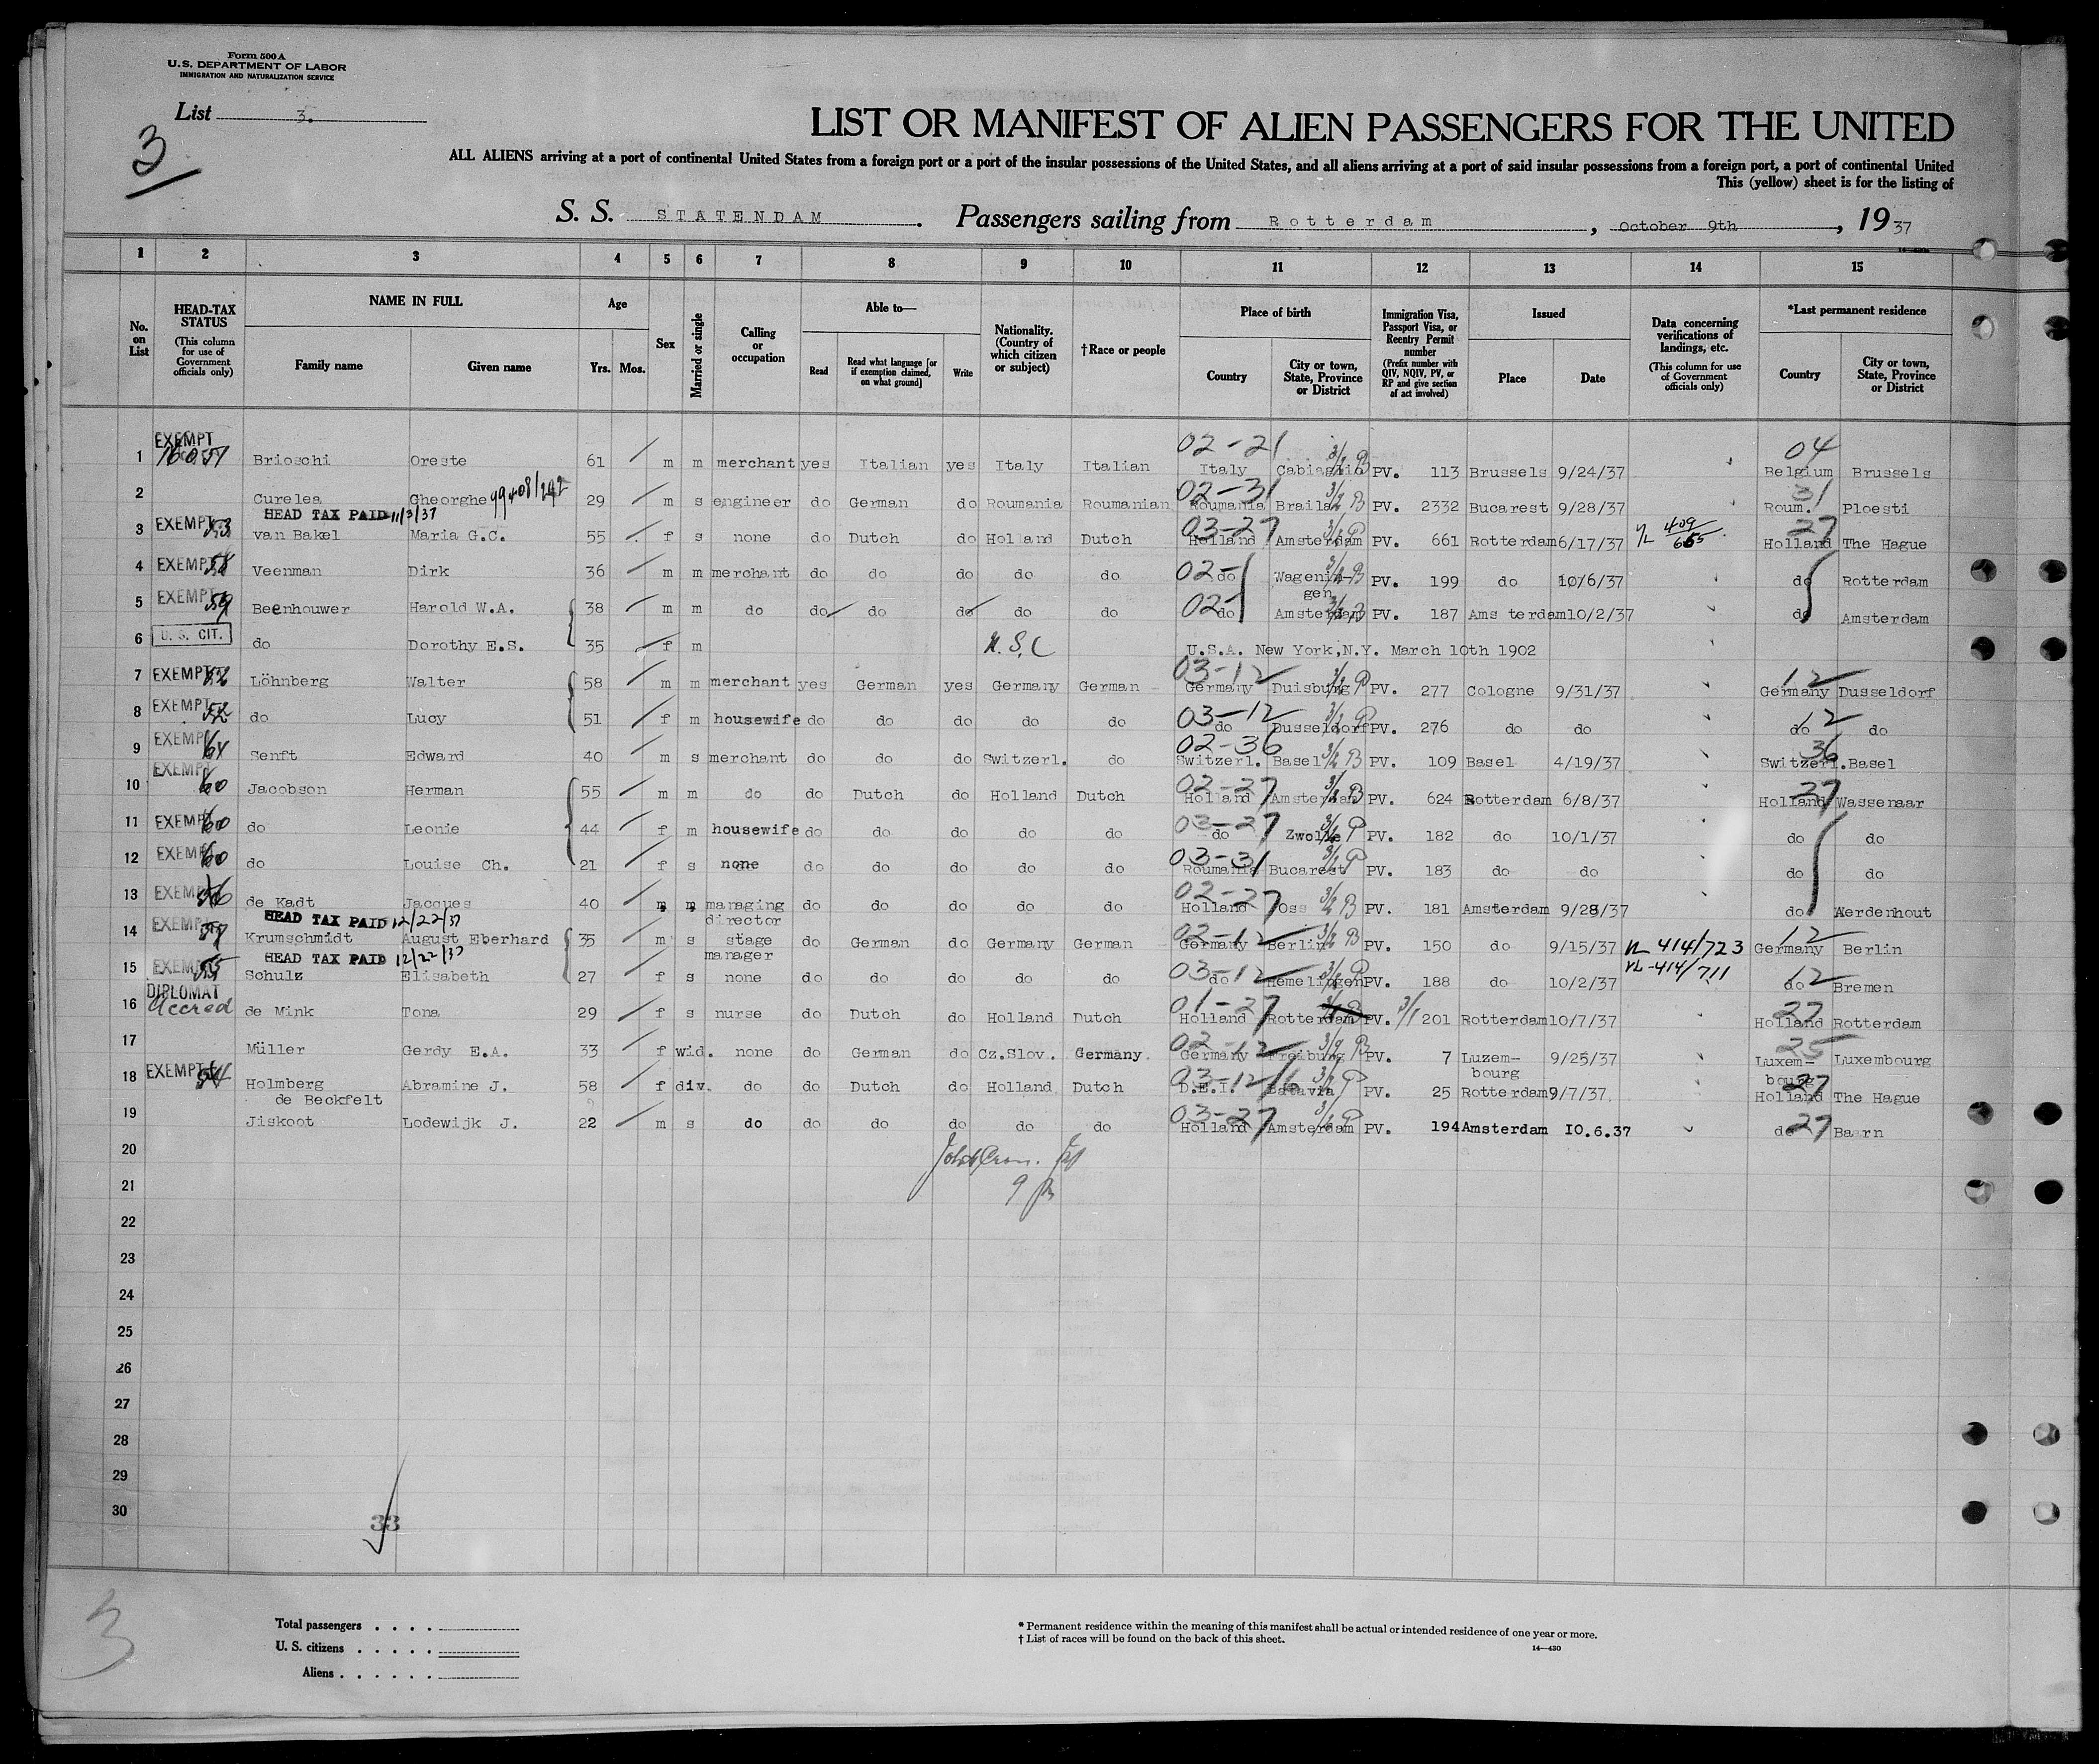 Form 500 A
U. S. DEPARTMENT OF LABOR
IMMIGRATION AND NATURALIZATION SERVICE
List 3.
3
LIST OR MANIFEST OF ALIEN PASSENGERS FOR THE UNITED
ALL ALIENS arriving at a port of continental United States from a foreign port or a port of the insular possessions of the United States, and all aliens arriving at a port of said insular possessions from a foreign port, a port of continental United
This (yellow) sheet is for the listing of
S. S. STATENDAM. Passengers sailing from Rotterdam, October 9th, 1937
1 2 3 4 5 6 7 8 9 10 11 12 13 14 15
No. on List
HEAD-TAX STATUS (This column for use of Government officials only)
NAME IN FULL
Family name Given name
Age
Yrs. Mos.
Sex
Married or single
Calling or occupation
Able to—
Read Read what language [or if exemption claimed, on what ground] Write
Nationality. (Country of which citizen or subject)
†Race or people
Place of birth
Country City or town, State, Province or District
Immigration Visa, Passport Visa, or Reentry Permit number (Prefix number with QIV, NQIV, PV, or RP and give section of act involved)
Issued
Place Date
Data concerning verifications of landings, etc. (This column for use of Government officials only)
*Last permanent residence
Country City or town, State, Province or District
02-21 04
1 EXEMPT Brioschi Oreste 61 m m merchant yes Italian yes Italy Italian Italy PV. 113 Brussels 9/24/37 Belgium Brussels
02-31 31
2 Curelea Gheorghe 29 m s engineer do German do Roumania Roumanian Roumania Braila 3/2 B PV. 2332 Bucarest 9/28/37 Roum. Ploesti
HEAD TAX PAID 11/3/37
03-27 27
3 EXEMPT 53 van Bakel Maria G.C. 55 f s none do Dutch do Holland Dutch Holland Amsterdam 3/2 P PV. 661 Rotterdam 6/17/37 409/655 Holland The Hague
4 EXEMPT 58 Veenman Dirk 36 m m merchant do do do do do 02- do Wagenin-gen 3/2 B PV. 199 do 10/6/37 do Rotterdam
5 EXEMPT 59 Beenhouwer Harold W.A. 38 m m do do do do do do 02- do Amsterdam 3/2 B PV. 187 Amsterdam 10/2/37 do Amsterdam
6 U. S. CIT. do Dorothy E.S. 35 f m U.S.C U.S.A. New York,N.Y. March 10th 1902
03-12 12
7 EXEMPT 52 Löhnberg Walter 58 m m merchant yes German yes Germany German Germany Duisburg 3/2 P PV. 277 Cologne 9/31/37 Germany Dusseldorf
8 EXEMPT 52 do Lucy 51 f m housewife do do do do do 03-12 do Dusseldorf 3/2 P PV. 276 do do 12 do do
02-36 36
9 EXEMPT 61 Senft Edward 40 m s merchant do do do Switzerl. do Switzerl. Basel 3/2 B PV. 109 Basel 4/19/37 Switzerl. Basel
02-27 27
10 EXEMPT 60 Jacobson Herman 55 m m do do Dutch do Holland Dutch Holland Amsterdam 3/2 B PV. 624 Rotterdam 6/8/37 Holland Wassenaar
11 EXEMPT 60 do Leonie 44 f m housewife do do do do do 03-27 do Zwolle 3/2 P PV. 182 do 10/1/37 do do
03-31
12 EXEMPT 60 do Louise Ch. 21 f s none do do do do do Roumania Bucarest 3/2 P PV. 183 do do do do
02-27
13 EXEMPT 56 de Kadt Jacques 40 m m managing director do do do do do Holland Oss 3/2 B PV. 181 Amsterdam 9/28/37 do Aerdenhout
HEAD TAX PAID 12/22/37
02-12 12
14 EXEMPT 57 Krumschmidt August Eberhard 35 m s stage manager do German do Germany German Germany Berlin 3/2 B PV. 150 do 9/15/37 VL 414/723 Germany Berlin
HEAD TAX PAID 12/22/37
15 EXEMPT 55 Schulz Elisabeth 27 f s none do do do do do 03-12 do Hemelingen 3/2 P PV. 188 do 10/2/37 VL-414/711 do 12 Bremen
DIPLOMAT 01-27 27
16 Accred de Mink Tona 29 f s nurse do Dutch do Holland Dutch Holland Rotterdam PV. 3/1 201 Rotterdam 10/7/37 Holland Rotterdam
02-12 25
17 Müller Gerdy E.A. 33 f wid. none do German do Cz.Slov. Germany. Germany Freiburg 3/2 B PV. 7 Luzem-bourg 9/25/37 Luxem-bourg Luxembourg
03-12/16 27
18 EXEMPT 54 Holmberg de Beckfelt Abramine J. 58 f div. do do Dutch do Holland Dutch D.E.I. Batavia 3/2 P PV. 25 Rotterdam 9/7/37. Holland The Hague
03-27 27
19 Jiskoot Lodewijk J. 22 m s do do do do do do Holland Amsterdam 3/2 P PV. 194 Amsterdam 10.6.37 do Baarn
20
21
22
23
24
25
26
27
28
29
30
33
3
Total passengers
U. S. citizens
Aliens
* Permanent residence within the meaning of this manifest shall be actual or intended residence of one year or more.
† List of races will be found on the back of this sheet.
14—430